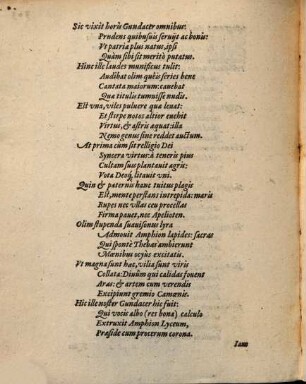 Sic vixit horis Gundacer omnibus:
Prudens quibusuis seruijt ac bonis:
Vt patria plus natus, ipsi
Quàm sibi sit meritò putatus.
Hinc ille laudes munificus tulit:
Audibat olim quêis series bene
Cantata maiorum: cauebat
Qua titulis tumuisse nudis.
Est vna, viles puluere quæ leuat:
Et stirpe notos altior euehit
Virtus, & astris æquat: illa
Nemo genus sine reddet auctum.
At prima cùm sit religio Dei
Syncera virtus: à teneris pius
Cultam suis plantauit agris:
Vota Deoq́; litauit vni.
Quin & paternis hanc tuitus plagis
Est, mente perstans intrepida: maris
Rupes nec vllas ceu procellas
Firma pauet, nec Apelioten.
Olim stupenda suauisonus lyra
Admouit Amphion lapides: sacras
Qui spontè Thebas ambierunt
Manibus ocyùs excitatis.
Vt magna sunt hæc, vilia sunt viris
Collata: Diuûm qui calidas fouent
Aras: & artem cum verendis
Excipiunt gremio Camœnis.
Hic ille noster Gundacer hic fuit:
Qui vocis albo (res bona) calculo
Extruxit Amphion Lyceum,
Præside cum procerum corona.
Iam